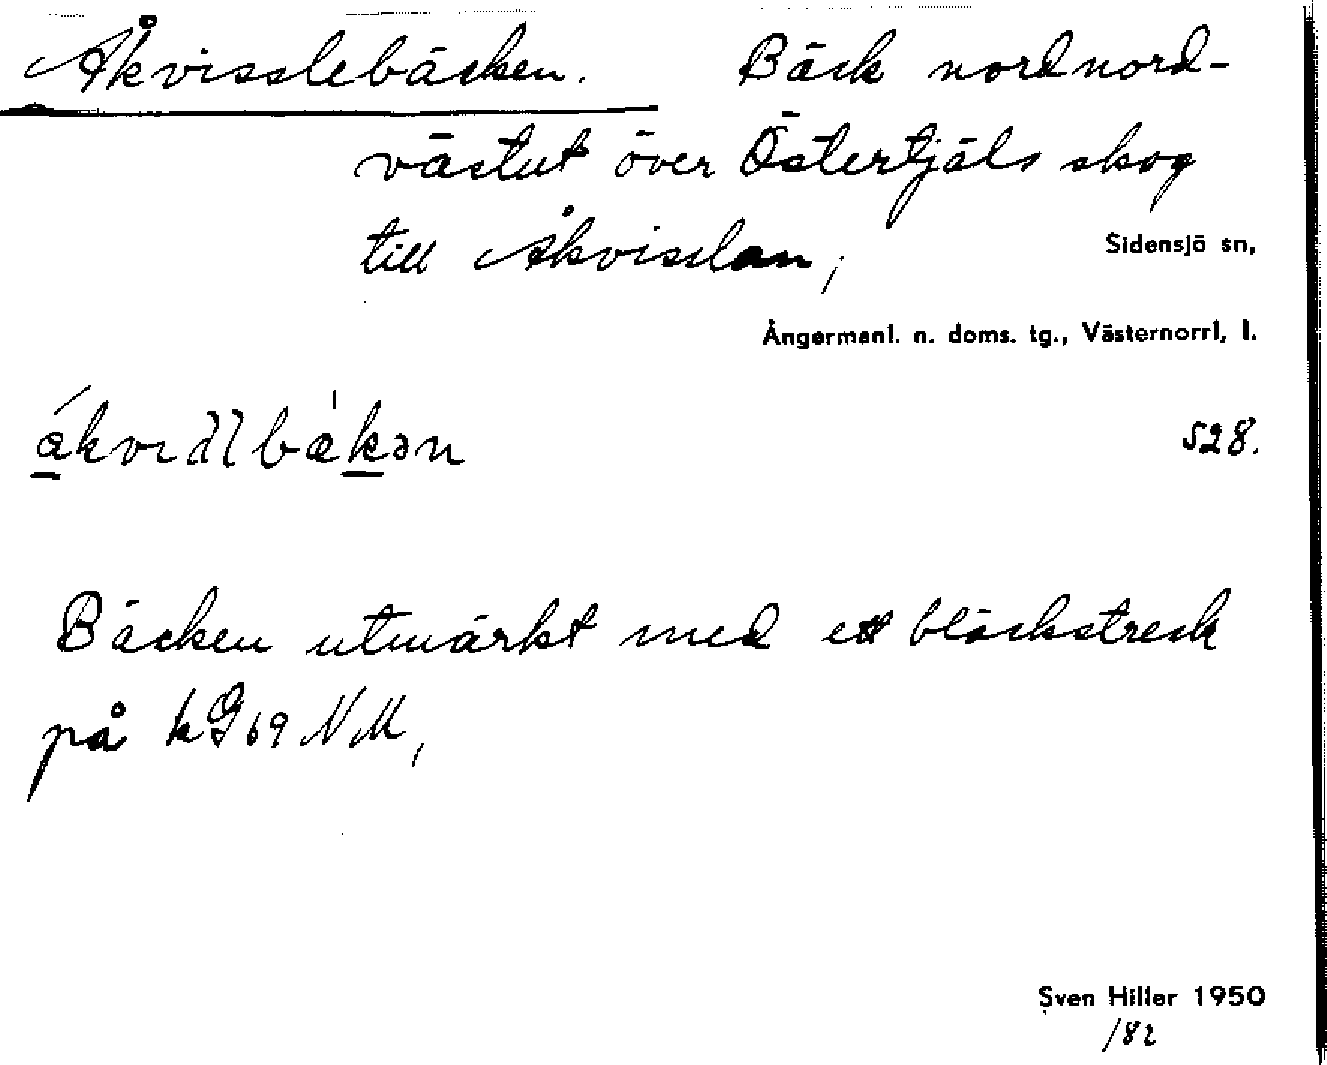 Åkvisslebäcken. Bäck nordnord-
västut över Östertjäls skog
till Åkvisslan,
Sidensjö sn,
Ångermanl. n. doms. tg., Västernorrl. l.
528.
Bäcken utmärkt med ett bläckstreck
på kG69 NM,
Sven Hiller 1950
/82